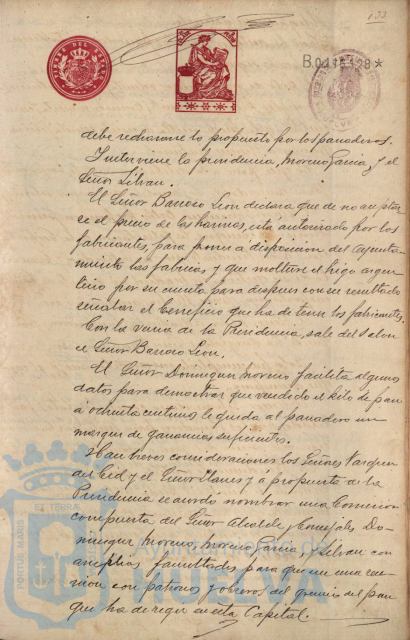 133
TIMBRE DEL ESTADO
B.0.418.198*
debe rechazarse lo propuesto por los panaderos.
Interviene la presidencia, Moreno García y el
Señor Silvan.
El Señor Barroso Leon declara que de no aceptar
se el precio de las harinas, está autorizado por los
fabricantes, para poner a disposición del Ayunta
miento las fábricas y que molture el trigo argen
tino por su cuenta para despues con su resultado
señalar el beneficio que ha de tener los fabricantes.
Con la venia de la Presidencia, sale del salon
el Señor Barroso Leon.
El Señor Dominguez Moreno facilita algunos
datos para demostrar que vendido el kilo de pan
á ochenta centimos le queda al panadero un
margen de ganancias suficientes.
Hacen breves consideraciones los Señores Vazquez
del Cid y el Señor Llanes y á propuesta de la
Presidencia se acordó nombrar una Comision
compuesta del Señor Alcalde y Concejales Do-
minguez Moreno, Moreno Garcia y Silvan con
amplias facultades para que en una reu
nion con patronos y obreros del gremio del pan
que ha de regir en esta Capital.
PORTUS MARIS ET TERRAE
Ayuntamiento de
HUELVA